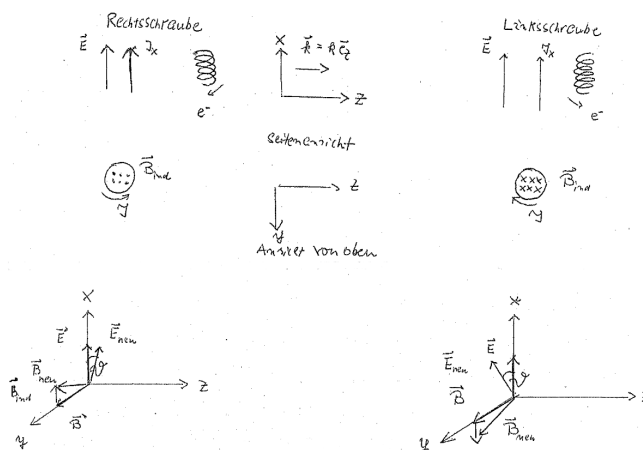 Rechtsschraube
E⃗ J_x
e⁻
X
k⃗ = k e⃗_z
Z
Linksschraube
E⃗ J_x
e⁻
Seitenansicht
B⃗_ind
J
Z
y
Ansicht von oben
B⃗_ind
J
X
E⃗ E⃗_neu
ϑ
B⃗_neu
B⃗_ind
B⃗
y
Z
X
E⃗_neu E⃗
ϑ
B⃗
B⃗_neu
y
Z